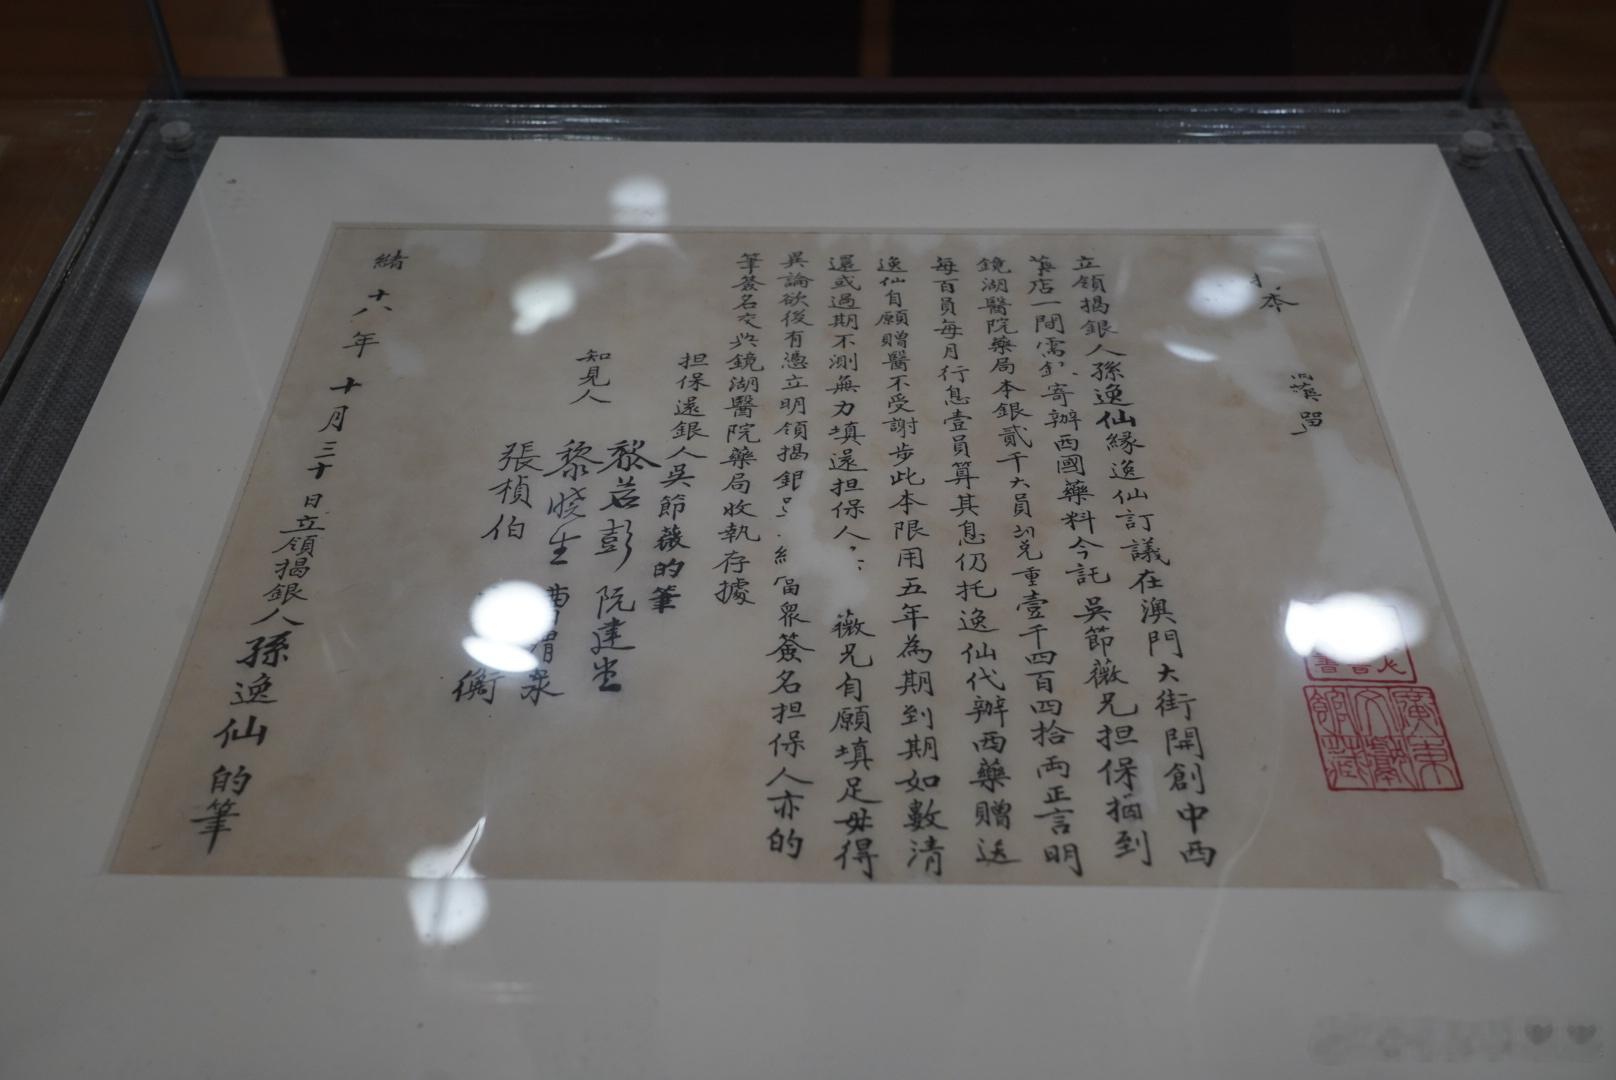 本
立領揭銀人孫逸仙緣逸仙訂議在澳門大街開創中西
藥店一間需銀寄辦西國藥料今託吳節薇兄担保揭到
鏡湖醫院藥局本銀貳千大員兌重壹千四百四拾両正言明
每百員每月行息壹員算其息仍托逸仙代辦西藥贈送
逸仙自願贈醫不受謝步此本限用五年為期到期如數清
還或過期不測無力填還担保人 薇兄自願填足毋得
異論欲後有憑立明領揭銀 當眾簽名担保人亦的
筆簽名交與鏡湖醫院藥局收執存據
担保還銀人吳節薇的筆
知見人
黎若彭 阮建堂
黎曉生 曹渭泉
張楨伯 衡
緒十八年十月三十日立領揭銀人孫逸仙的筆
廣東
文獻
館藏